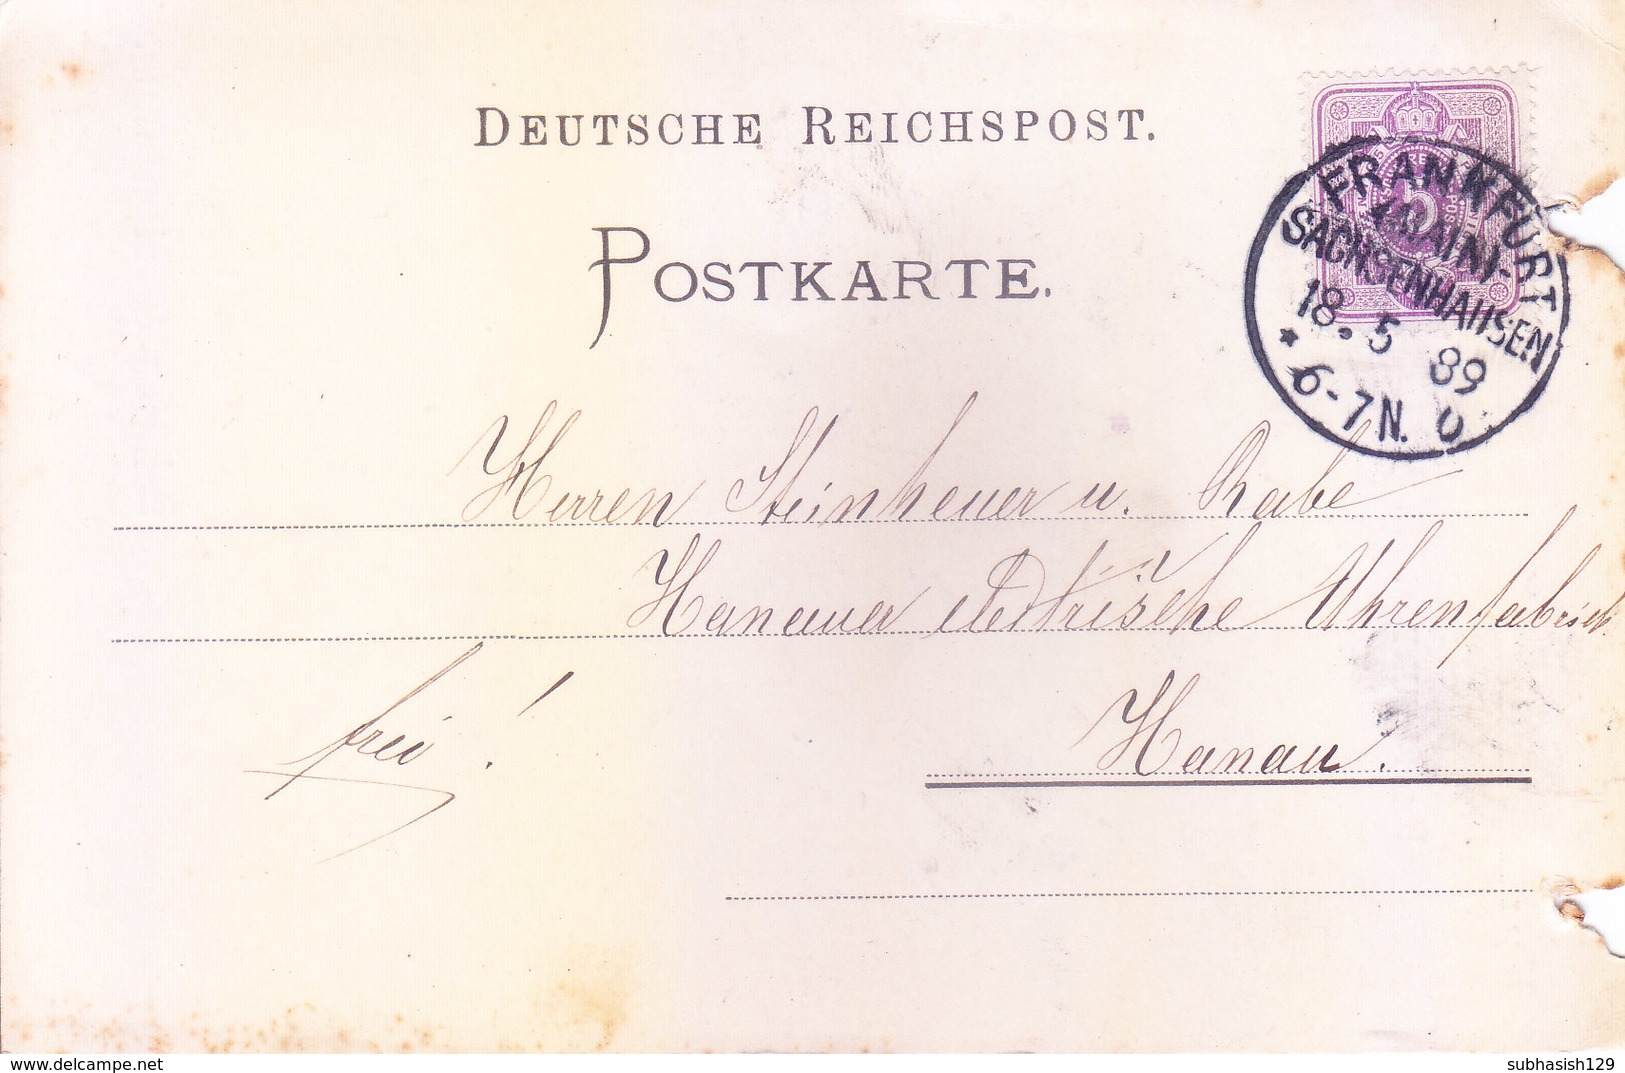 DEUTSCHE REICHSPOST.
POSTKARTE.
FRANKFURT
(MAIN)-
SACHSENHAUSEN
18. 5 89
* 6-7N.
5
Herren Steinheuer u. Rabe
Hanauer electrische Uhrenfabrik
frei!
Hanau.
www.delcampe.net
subhasish129